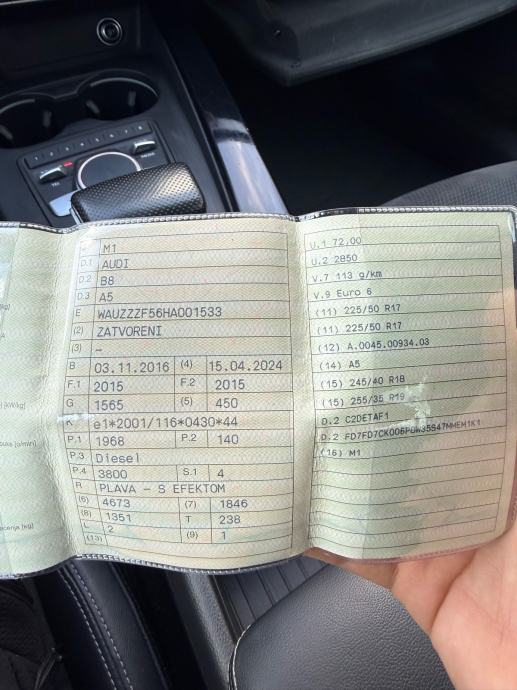 J M1
D.1 AUDI
D.2 B8
D.3 A5
E WAUZZZF56HA001533
(2) ZATVORENI
(3) –
B 03.11.2016 (4) 15.04.2024
F.1 2015 F.2 2015
G 1565 (5) 450
K e1*2001/116*0430*44
P.1 1968 P.2 140
P.3 Diesel
P.4 3800 S.1 4
R PLAVA – S EFEKTOM
(6) 4673 (7) 1846
(8) 1351 T 238
L 2
(13) (9) 1
U.1 72,00
U.2 2850
V.7 113 g/km
V.9 Euro 6
(11) 225/50 R17
(11) 225/50 R17
(12) A.0045.00934.03
(14) A5
(15) 245/40 R18
(15) 255/35 R19
D.2 C2DETAF1
D.2
(16) M1